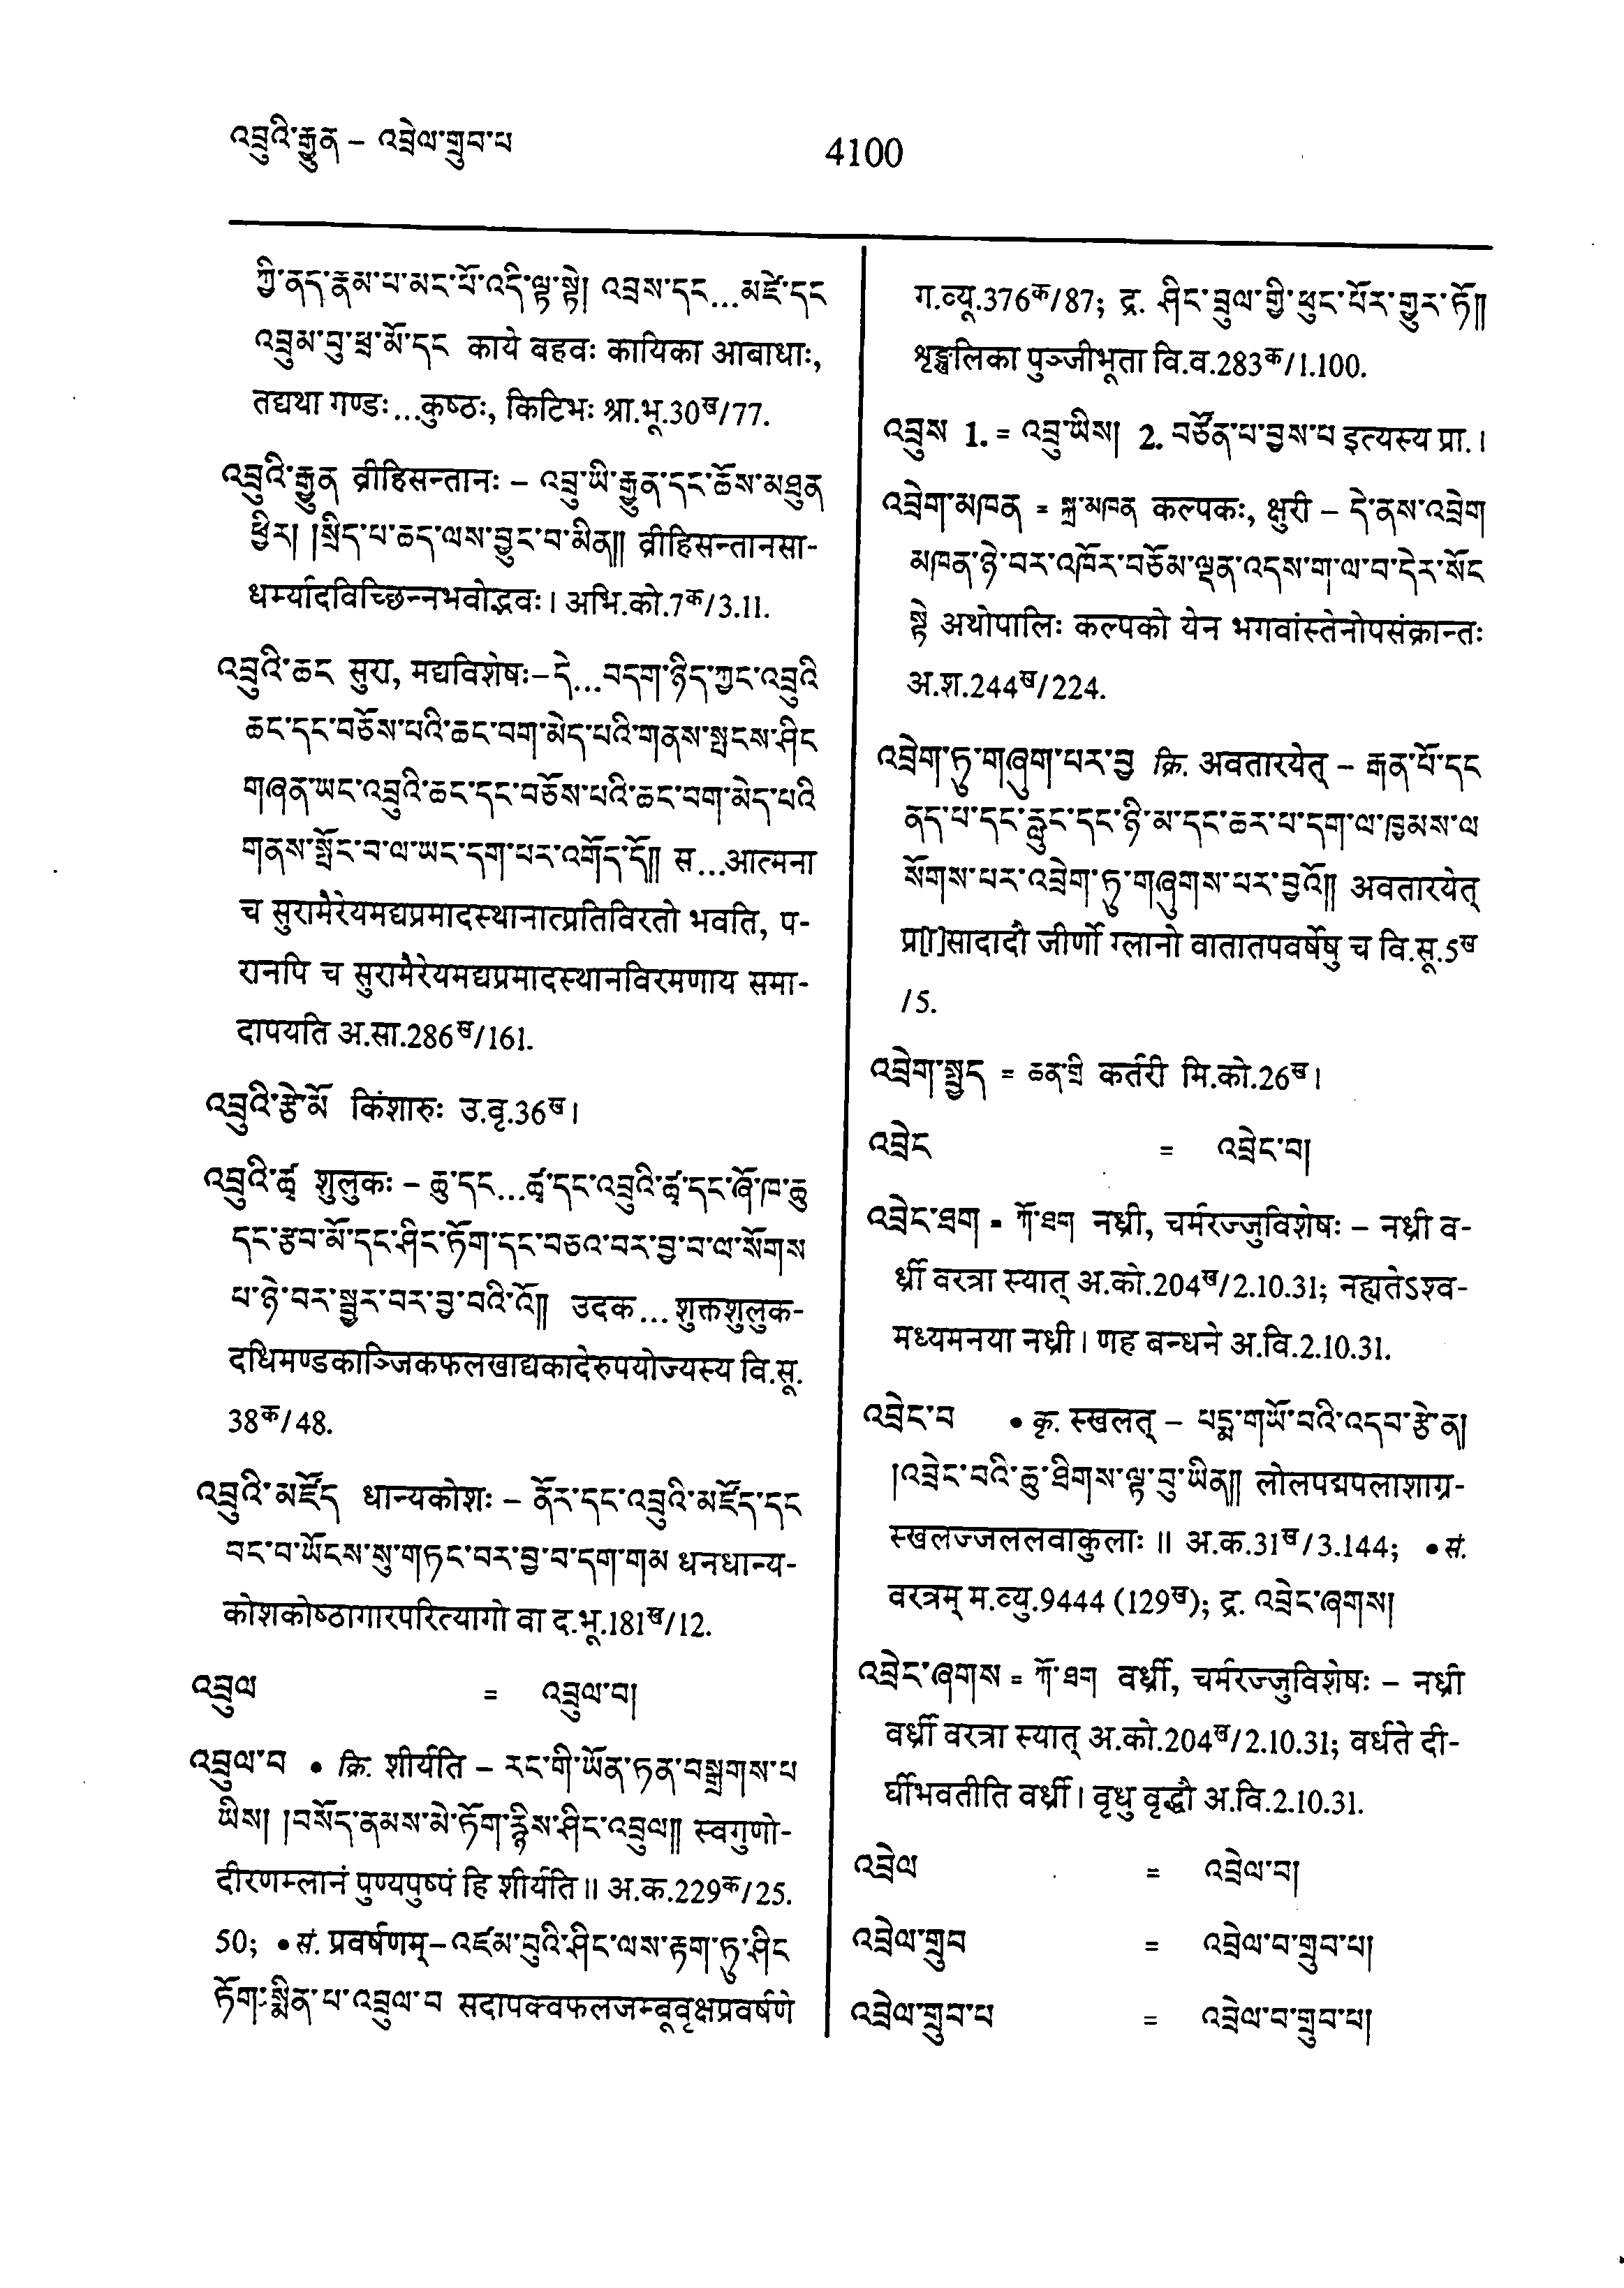 འབྲུའི་རྒྱུན – འབྲེལ་གྲུབ་པ
4100
ཀྱི་ནད་རྣམ་པ་མང་པོ་འདི་ལྟ་སྟེ། འབྲས་དང...མཛེ་དང
འབྲུམ་བུ་ཕྲ་མོ་དང काये बहवः कायिका आबाधाः,
तद्यथा गण्डः...कुष्ठः, किटिभः श्रा.भू.30ख/77.
འབྲུའི་རྒྱུན व्रीहिसन्तानः – འབྲུ་ཡི་རྒྱུན་དང་ཆོས་མཐུན
ཕྱིར། །སྲིད་པ་ཆད་ལས་བྱུང་བ་མིན།། व्रीहिसन्तानसा-
धर्म्यादविच्छिन्नभवोद्भवः। अभि.को.7क/3.11.
འབྲུའི་ཆང सुरा, मद्यविशेषः–དེ...བདག་ཉིད་ཀྱང་འབྲུའི
ཆང་དང་བཅོས་པའི་ཆང་བག་མེད་པའི་གནས་སྤངས་ཤིང
གཞན་ཡང་འབྲུའི་ཆང་དང་བཅོས་པའི་ཆང་བག་མེད་པའི
གནས་སྤོང་བ་ལ་ཡང་དག་པར་འགོད་དོ།། स...आत्मना
च सुरामैरेयमद्यप्रमादस्थानात्प्रतिविरतो भवति, प-
रानपि च सुरामैरेयमद्यप्रमादस्थानविरमणाय समा-
दापयति अ.सा.286ख/161.
འབྲུའི་རྩེ་མོ किंशारुः उ.वृ.36ख।
འབྲུའི་ཚྭ शुलुकः – ཆུ་དང...ཚྭ་དང་འབྲུའི་ཚྭ་དང་ཞོ་ཁ་ཆུ
དང་རྩབ་མོ་དང་ཤིང་ཏོག་དང་བཅའ་བར་བྱ་བ་ལ་སོགས
པ་ཉེ་བར་སྦྱར་བར་བྱ་བའི་འོ།། उदक...शुक्तशुलुक-
दधिमण्डकाञ्जिकफलखाद्यकादेरुपयोज्यस्य वि.सू.
38क/48.
འབྲུའི་མཛོད धान्यकोशः – ནོར་དང་འབྲུའི་མཛོད་དང
བང་བ་ཡོངས་སུ་གཏང་བར་བྱ་བ་དག་གམ धनधान्य-
कोशकोष्ठागारपरित्यागो वा द.भू.181ख/12.
འབྲུལ = འབྲུལ་བ།
འབྲུལ་བ • क्रि. शीर्यति – རང་གི་ཡོན་ཏན་བསྒྲགས་པ
ཡིས། །བསོད་ནམས་མེ་ཏོག་རྙིས་ཤིང་འབྲུལ།། स्वगुणो-
दीरणम्लानं पुण्यपुष्पं हि शीर्यति॥ अ.क.229क/25.
50; • सं. प्रवर्षणम्–འཛམ་བུའི་ཤིང་ལས་རྟག་ཏུ་ཤིང
ཏོག་སྨིན་པ་འབྲུལ་བ सदापक्वफलजम्बूवृक्षप्रवर्षणे
ग.व्यू.376क/87; द्र. ཤིང་བྲུལ་གྱི་ཕུང་པོར་གྱུར་ཏོ།།
शृङ्खलिका पुञ्जीभूता वि.व.283क/1.100.
འབྲུས 1. = འབྲུ་ཡིས། 2. བཙོན་པ་བྱས་པ इत्यस्य प्रा.।
འབྲེག་མཁན = སྐྲ་མཁན कल्पकः, क्षुरी – དེ་ནས་འབྲེག
མཁན་ཉེ་བར་འཁོར་བཅོམ་ལྡན་འདས་ག་ལ་བ་དེར་སོང
སྟེ अथोपालिः कल्पको येन भगवांस्तेनोपसंक्रान्तः
अ.श.244ख/224.
འབྲེག་ཏུ་གཞུག་པར་བྱ क्रि. अवतारयेत् – རྒན་པོ་དང
ནད་པ་དང་རླུང་དང་ཉི་མ་དང་ཆར་པ་དག་ལ་ཁྱམས་ལ
སོགས་པར་འབྲེག་ཏུ་གཞུགས་པར་བྱའོ།། अवतारयेत्
प्र[ा]सादादौ जीर्णो ग्लानो वातातपवर्षेषु च वि.सू.5ख
/5.
འབྲེག་སྤྱད = ཆན་གྲི कर्तरी मि.को.26ख।
འབྲེང = འབྲེང་བ།
འབྲེང་ཐག = ཀོ་ཐག नध्री, चर्मरज्जुविशेषः – नध्री व-
र्ध्री वरत्रा स्यात् अ.को.204ख/2.10.31; नह्यतेऽश्व-
मध्यमनया नध्री। णह बन्धने अ.वि.2.10.31.
འབྲེང་བ • कृ. स्खलत् – པདྨ་གཡོ་བའི་འདབ་རྩེ་ན།
།འབྲེང་བའི་ཆུ་ཐིགས་ལྟ་བུ་ཡིན།། लोलपद्मपलाशाग्र-
स्खलज्जललवाकुलाः॥ अ.क.31ख/3.144; • सं.
वरत्रम् म.व्यु.9444 (129ख); द्र. འབྲེང་ཞགས།
འབྲེང་ཞགས = ཀོ་ཐག वर्ध्री, चर्मरज्जुविशेषः – नध्री
वर्ध्री वरत्रा स्यात् अ.को.204ख/2.10.31; वर्धते दी-
र्घीभवतीति वर्ध्री। वृधु वृद्धौ अ.वि.2.10.31.
འབྲེལ = འབྲེལ་བ།
འབྲེལ་གྲུབ = འབྲེལ་བ་གྲུབ་པ།
འབྲེལ་གྲུབ་པ = འབྲེལ་བ་གྲུབ་པ།